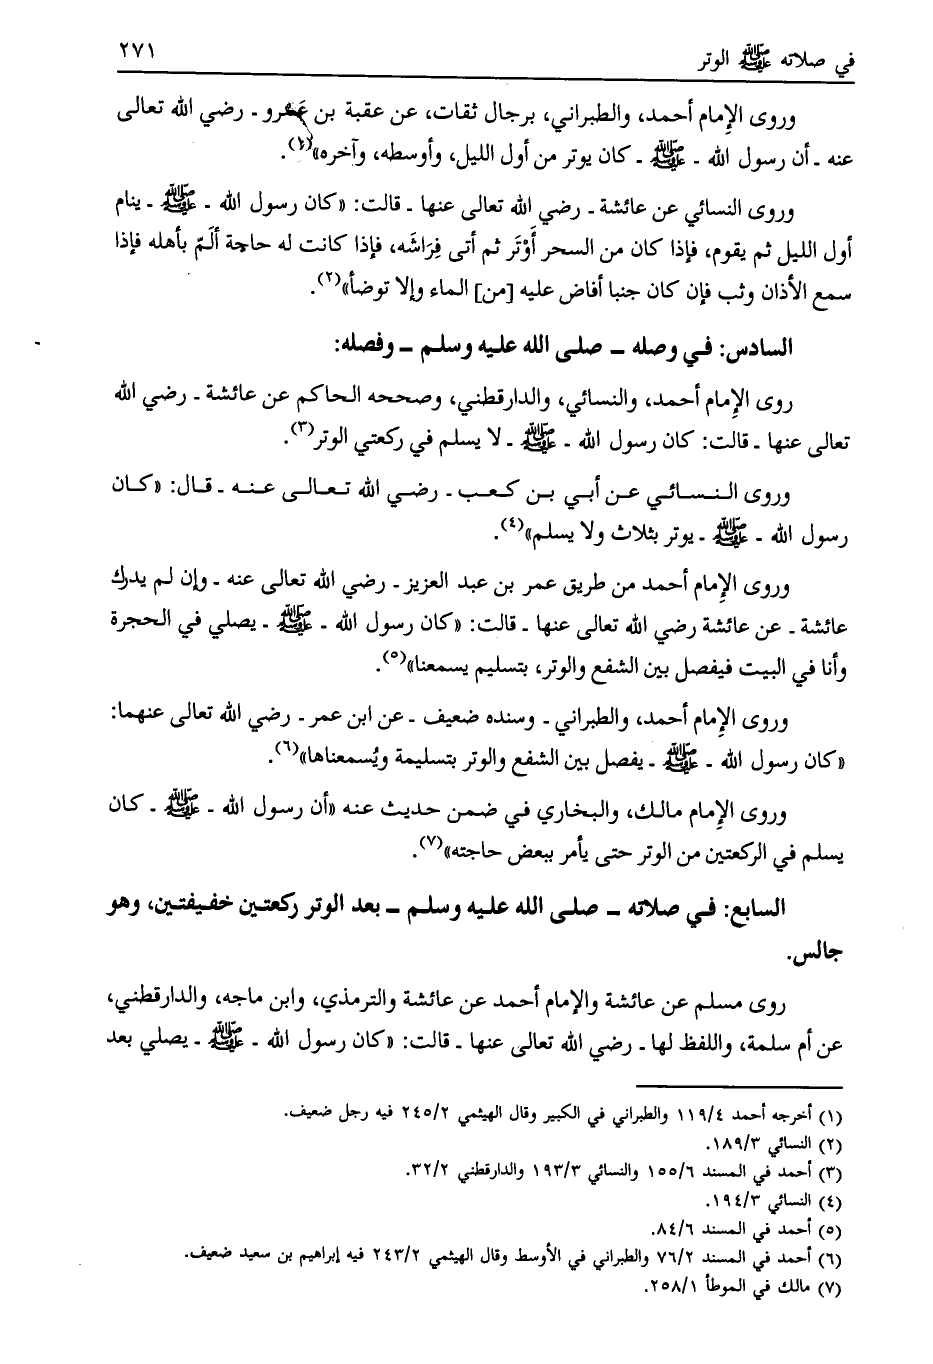 في صلاته ﷺ الوتر ٢٧١
وروى الإِمام أحمد، والطبراني، برجال ثقات، عن عقبة بن عَمْرو ـ رضي الله تعالى
عنه ـ أن رسول الله ـ ﷺ ـ كان يوتر من أول الليل، وأوسطه، وآخره»(١).
وروى النسائي عن عائشة ـ رضي الله تعالى عنها ـ قالت: «كان رسول الله ـ ﷺ ـ ينام
أول الليل ثم يقوم، فإذا كان من السحر أَوْتَر ثم أتى فِرَاشَه، فإذا كانت له حاجة أَلَمّ بأهله فإذا
سمع الأذان وثب فإن كان جنبا أفاض عليه [من] الماء وإلا توضأ»(٢).
السادس: في وصله ـ صلى الله عليه وسلم ـ وفصله:
روى الإِمام أحمد، والنسائي، والدارقطني، وصححه الحاكم عن عائشة ـ رضي الله
تعالى عنها ـ قالت: كان رسول الله ـ ﷺ ـ لا يسلم في ركعتي الوتر(٣).
وروى النسائي عن أبي بن كعب ـ رضي الله تعالى عنه ـ قال: «كان
رسول الله ـ ﷺ ـ يوتر بثلاث ولا يسلم»(٤).
وروى الإِمام أحمد من طريق عمر بن عبد العزيز ـ رضي الله تعالى عنه ـ وإن لم يدرك
عائشة ـ عن عائشة رضي الله تعالى عنها ـ قالت: «كان رسول الله ـ ﷺ ـ يصلي في الحجرة
وأنا في البيت فيفصل بين الشفع والوتر، بتسليم يسمعنا»(٥).
وروى الإِمام أحمد، والطبراني ـ وسنده ضعيف ـ عن ابن عمر ـ رضي الله تعالى عنهما:
«كان رسول الله ـ ﷺ ـ يفصل بين الشفع والوتر بتسليمة ويُسمعناها»(٦).
وروى الإِمام مالك، والبخاري في ضمن حديث عنه «أن رسول الله ـ ﷺ ـ كان
يسلم في الركعتين من الوتر حتى يأمر ببعض حاجته»(٧).
السابع: في صلاته ـ صلى الله عليه وسلم ـ بعد الوتر ركعتين خفيفتين، وهو
جالس.
روى مسلم عن عائشة والإمام أحمد عن عائشة والترمذي، وابن ماجه، والدارقطني،
عن أم سلمة، واللفظ لها ـ رضي الله تعالى عنها ـ قالت: «كان رسول الله ـ ﷺ ـ يصلي بعد
(١) أخرجه أحمد ١١٩/٤ والطبراني في الكبير وقال الهيثمي ٢٤٥/٢ فيه رجل ضعيف.
(٢) النسائي ١٨٩/٣.
(٣) أحمد في المسند ١٥٥/٦ والنسائي ١٩٣/٣ والدارقطني ٣٢/٢.
(٤) النسائي ١٩٤/٣.
(٥) أحمد في المسند ٨٤/٦.
(٦) أحمد في المسند ٧٦/٢ والطبراني في الأوسط وقال الهيثمي ٢٤٣/٢ فيه إبراهيم بن سعيد ضعيف.
(٧) مالك في الموطأ ٢٥٨/١.